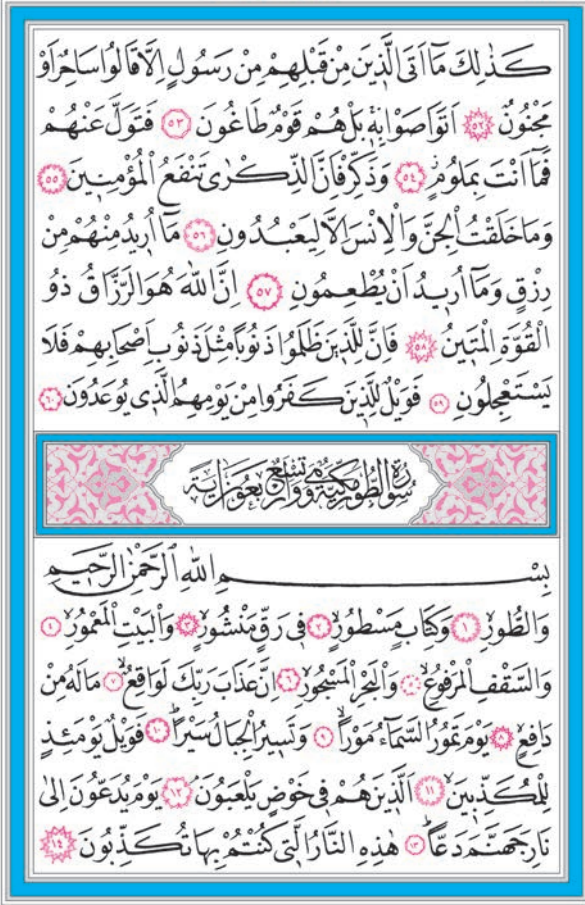 كَذٰلِكَ مَٓا اَتَى الَّذ۪ينَ مِنْ قَبْلِهِمْ مِنْ رَسُولٍ اِلَّا قَالُوا سَاحِرٌ اَوْ
مَجْنُونٌ ﴿٥٢﴾ اَتَوَاصَوْا بِه۪ بَلْ هُمْ قَوْمٌ طَاغُونَ ﴿٥٣﴾ فَتَوَلَّ عَنْهُمْ
فَمَٓا اَنْتَ بِمَلُومٍ ﴿٥٤﴾ وَذَكِّرْ فَاِنَّ الذِّكْرٰى تَنْفَعُ الْمُؤْمِن۪ينَ ﴿٥٥﴾
وَمَا خَلَقْتُ الْجِنَّ وَالْاِنْسَ اِلَّا لِيَعْبُدُونِ ﴿٥٦﴾ مَٓا اُر۪يدُ مِنْهُمْ مِنْ
رِزْقٍ وَمَٓا اُر۪يدُ اَنْ يُطْعِمُونِ ﴿٥٧﴾ اِنَّ اللّٰهَ هُوَ الرَّزَّاقُ ذُو
الْقُوَّةِ الْمَت۪ينُ ﴿٥٨﴾ فَاِنَّ لِلَّذ۪ينَ ظَلَمُوا ذَنُوبًا مِثْلَ ذَنُوبِ اَصْحَابِهِمْ فَلَا
يَسْتَعْجِلُونِ ﴿٥٩﴾ فَوَيْلٌ لِلَّذ۪ينَ كَفَرُوا مِنْ يَوْمِهِمُ الَّذ۪ي يُوعَدُونَ ﴿٦٠﴾
سُورَةُ الطُّورِ مَكِّيَّةٌ وَهِيَ تِسْعٌ وَاَرْبَعُونَ اٰيَةً
بِسْمِ اللّٰهِ الرَّحْمٰنِ الرَّح۪يمِ
وَالطُّورِۙ ﴿١﴾ وَكِتَابٍ مَسْطُورٍۙ ﴿٢﴾ ف۪ي رَقٍّ مَنْشُورٍۙ ﴿٣﴾ وَالْبَيْتِ الْمَعْمُورِۙ ﴿٤﴾
وَالسَّقْفِ الْمَرْفُوعِۙ ﴿٥﴾ وَالْبَحْرِ الْمَسْجُورِۙ ﴿٦﴾ اِنَّ عَذَابَ رَبِّكَ لَوَاقِعٌۙ ﴿٧﴾ مَا لَهُ مِنْ
دَافِعٍۙ ﴿٨﴾ يَوْمَ تَمُورُ السَّمَٓاءُ مَوْرًاۙ ﴿٩﴾ وَتَس۪يرُ الْجِبَالُ سَيْرًاۜ ﴿١٠﴾ فَوَيْلٌ يَوْمَئِذٍ
لِلْمُكَذِّب۪ينَۙ ﴿١١﴾ اَلَّذ۪ينَ هُمْ ف۪ي خَوْضٍ يَلْعَبُونَۢ ﴿١٢﴾ يَوْمَ يُدَعُّونَ اِلٰى
نَارِ جَهَنَّمَ دَعًّاۜ ﴿١٣﴾ هٰذِهِ النَّارُ الَّت۪ي كُنْتُمْ بِهَا تُكَذِّبُونَ ﴿١٤﴾